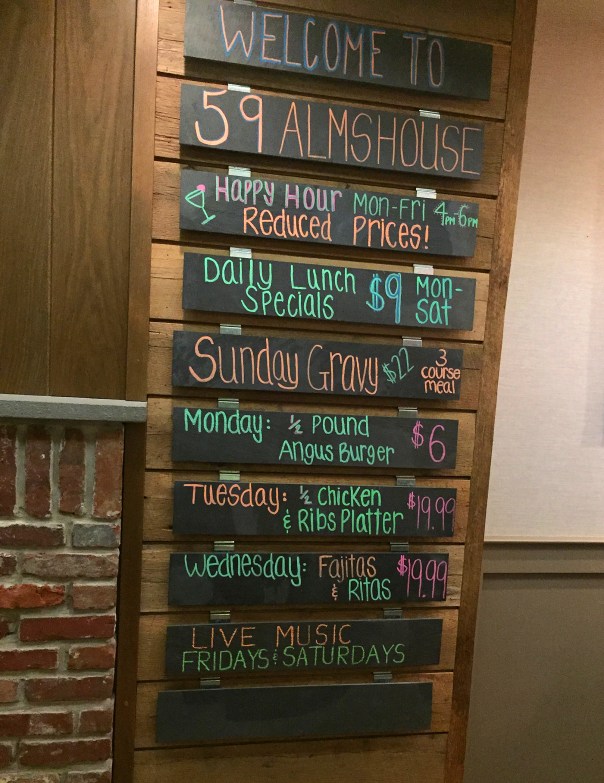 WELCOME TO
59 ALMSHOUSE
Happy Hour Mon-Fri 4PM-6PM
Reduced Prices!
Daily Lunch $9 Mon-
Specials Sat
Sunday Gravy $22 3 course meal
Monday: ½ Pound $6
Angus Burger
Tuesday: ½ Chicken $19.99
& Ribs Platter
Wednesday: Fajitas $19.99
& Ritas
LIVE MUSIC
FRIDAYS & SATURDAYS